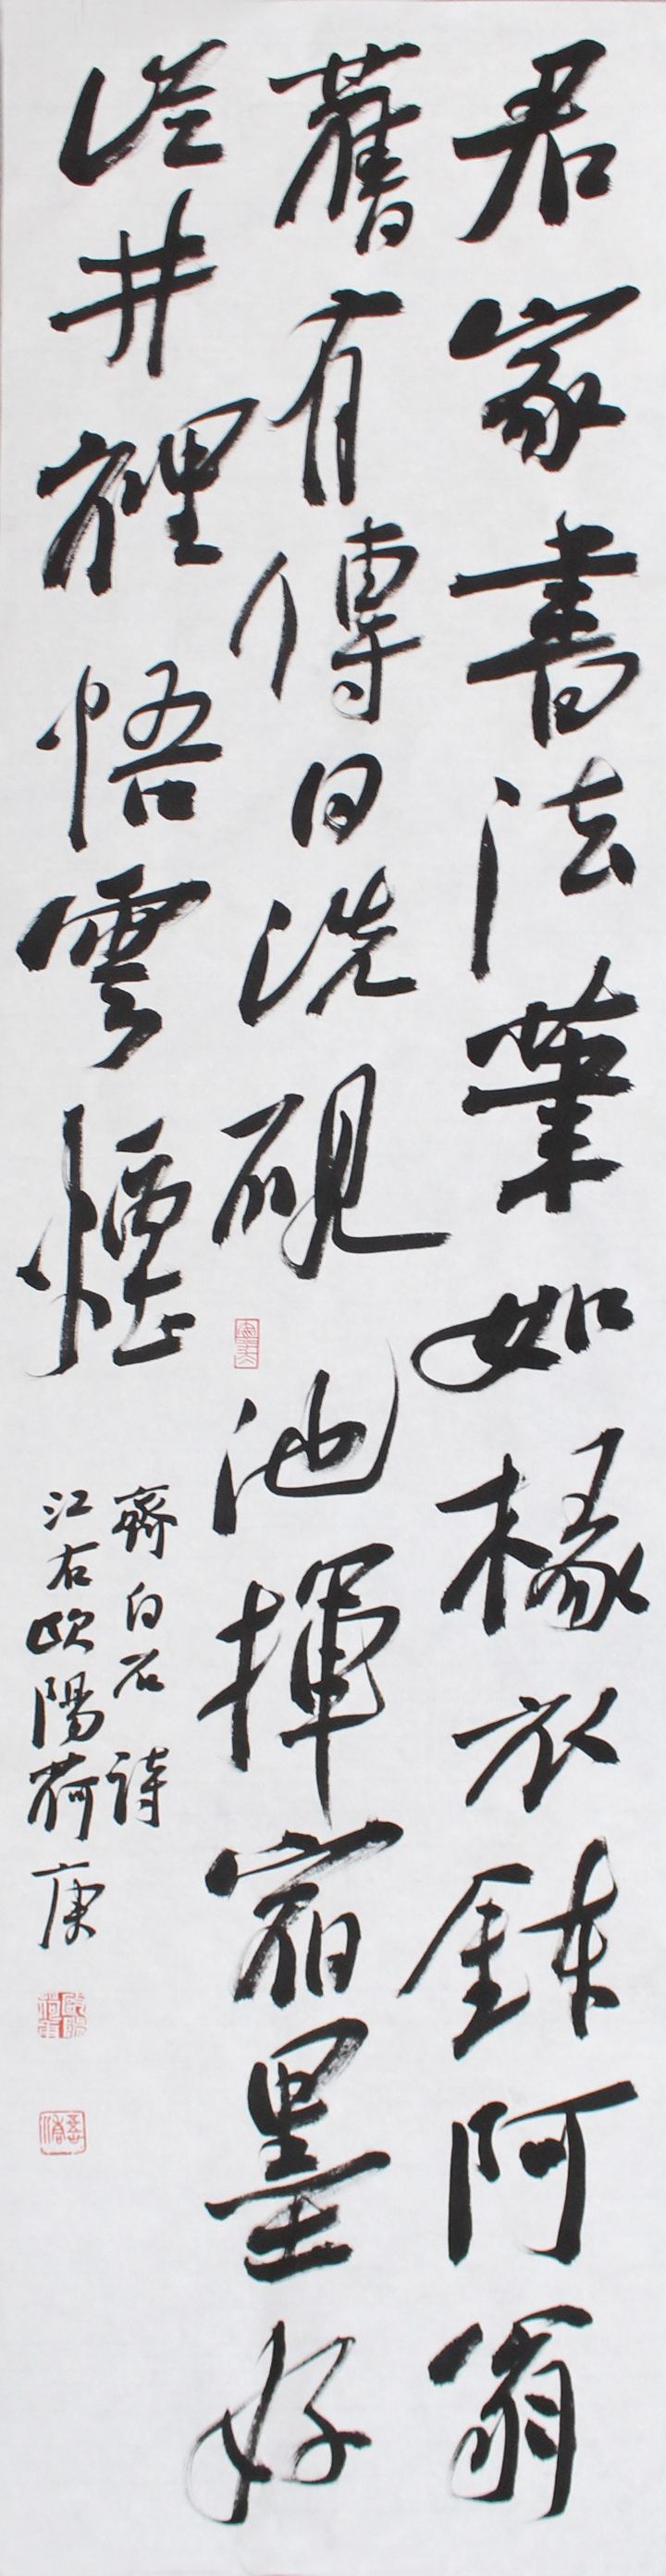 君家書法筆如椽衣鉢阿翁
舊有傳日洗硯池揮宿墨好
從井裡悟雲煙
齊白石詩
江右歐陽荷庚